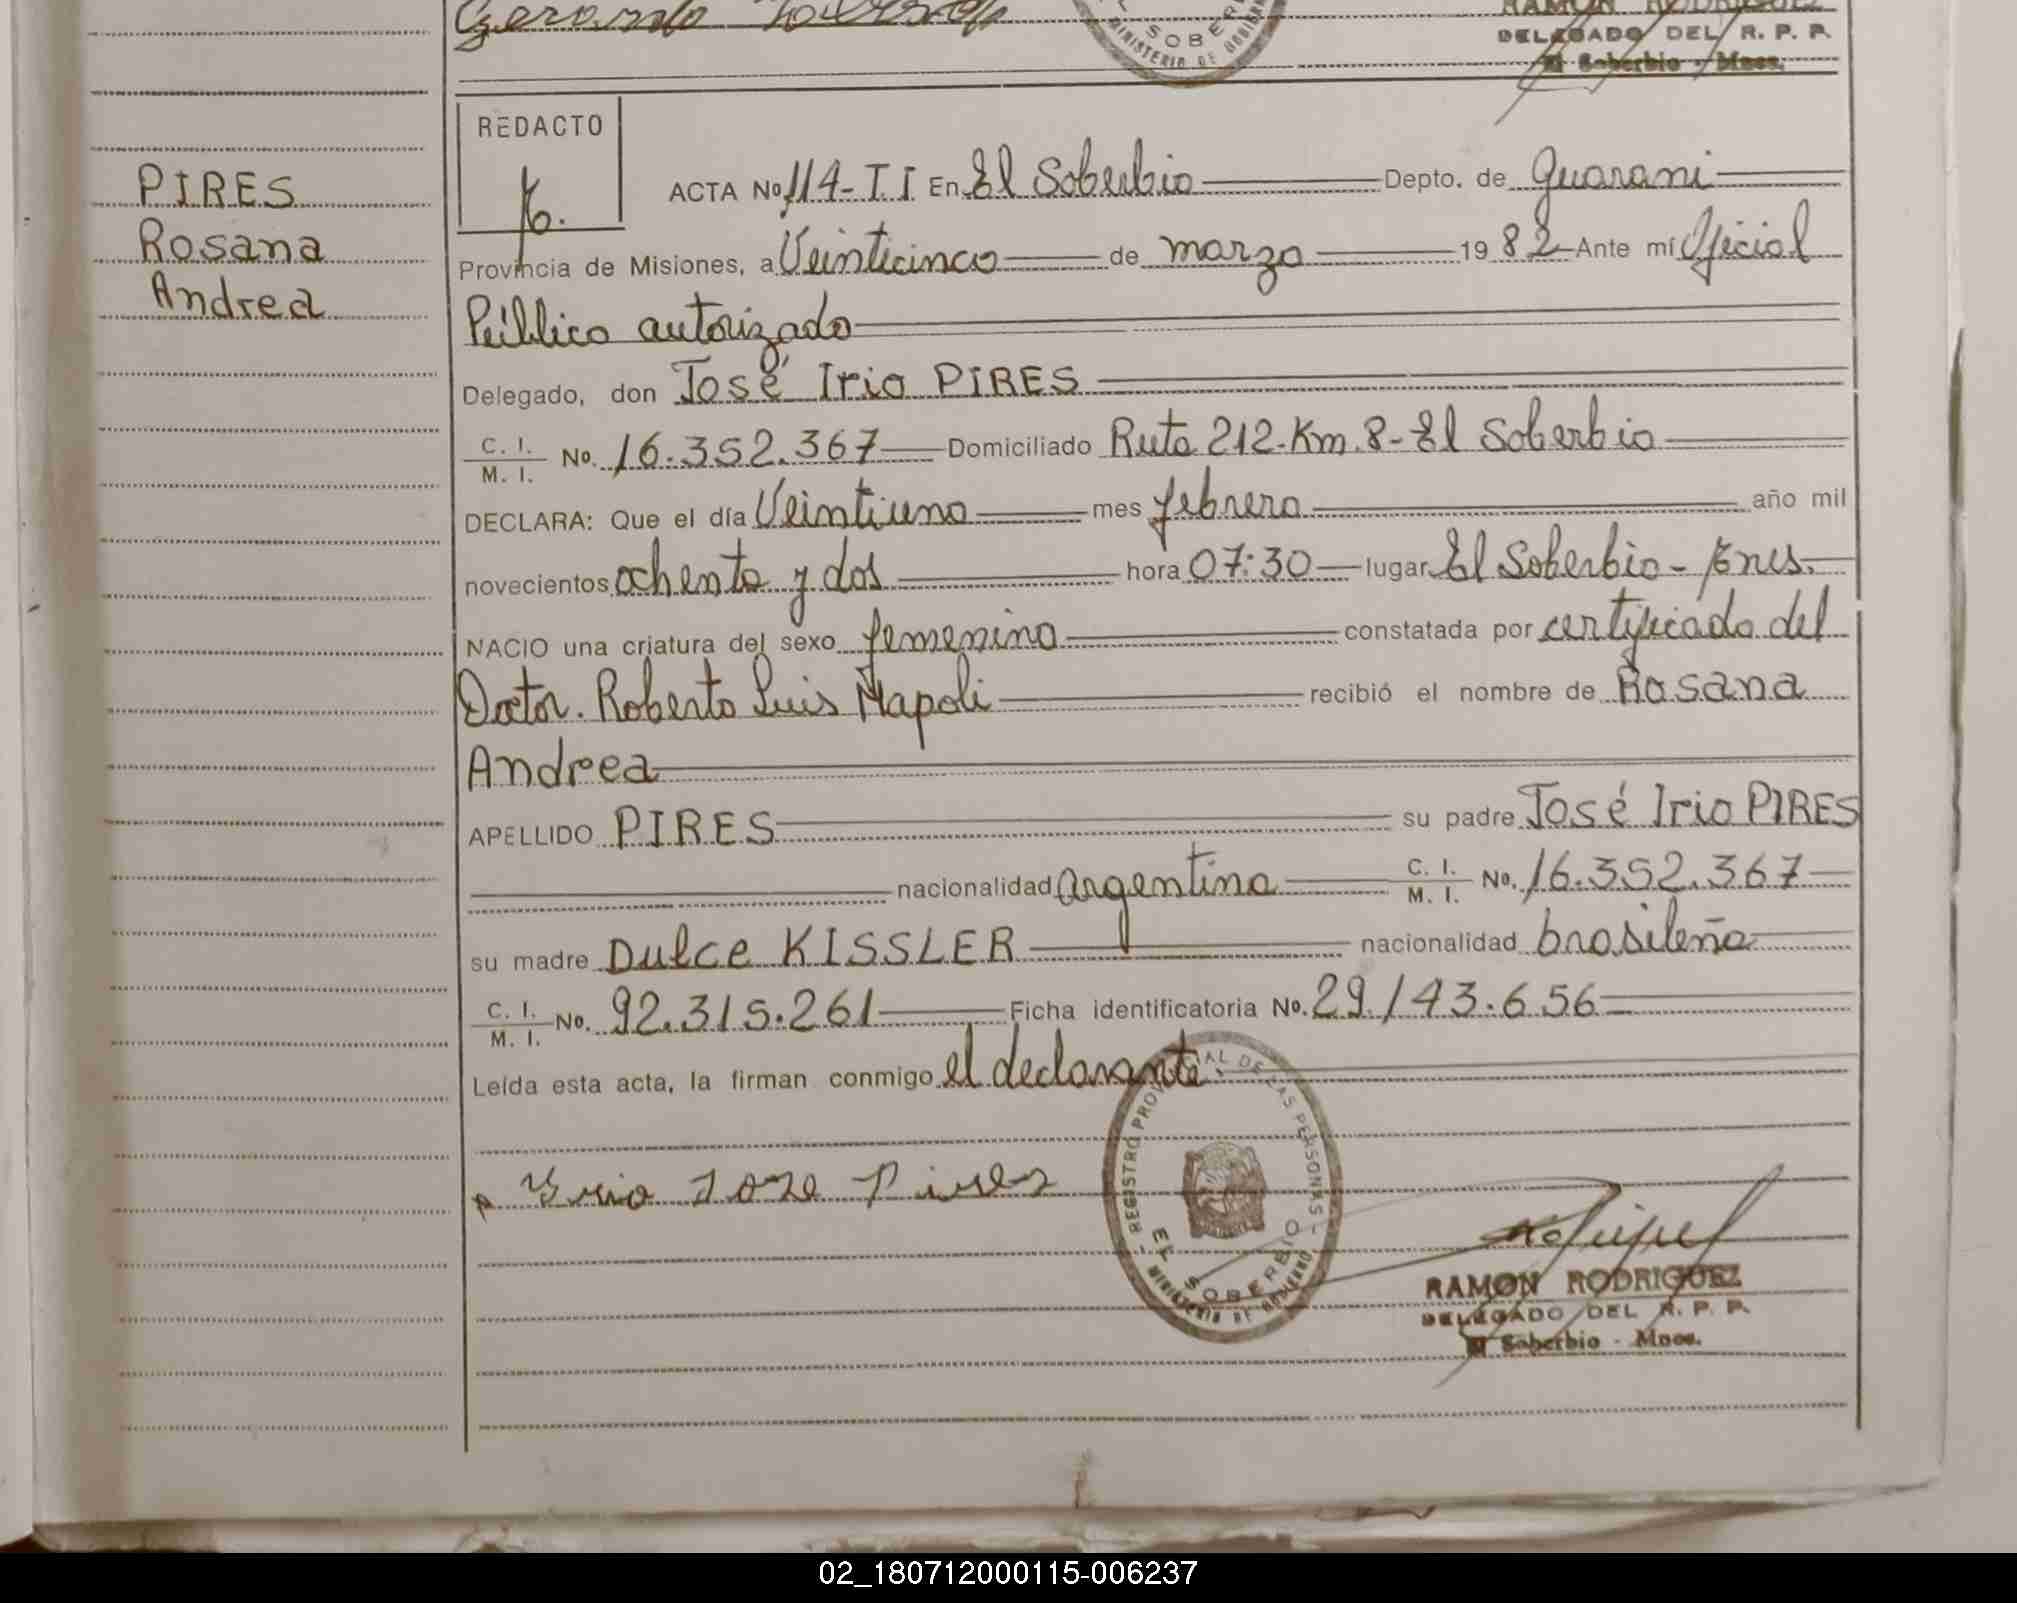 RAMON RODRIGUEZ
DELEGADO DEL R. P. P.
El Soberbio - Mnes.
SOBER
MINISTERIO DE GOBIERN
PIRES
Rosana
Andrea
REDACTO
ACTA No 114-II En El Soberbio Depto. de Guarani
Provincia de Misiones, a Veinticinco de marzo 1982 Ante mí Oficial
Público autorizado
Delegado, don José Irio PIRES
C. I. / M. I. No. 16.352.367 Domiciliado Ruta 212-Km.8-El Soberbio
DECLARA: Que el día Veintiuno mes febrero año mil
novecientos ochenta y dos hora 07:30 lugar El Soberbio -
NACIO una criatura del sexo femenino constatada por certificado del
Doctor. Roberto Luis Napoli recibió el nombre de Rosana
Andrea
APELLIDO PIRES su padre José Irio PIRES
nacionalidad argentina C. I. / M. I. No. 16.352.367
su madre Dulce KISSLER nacionalidad brasileña
C. I. / M. I. No. 92.315.261 Ficha identificatoria No. 29/43.656
Leída esta acta, la firman conmigo el declarante.
Irio Joze Pires
REGISTRO PROVINCIAL DE LAS PERSONAS
EL SOBERBIO
MINISTERIO DE GOBIERNO
RAMON RODRIGUEZ
DELEGADO DEL R. P. P.
El Soberbio - Mnes.
02_180712000115-006237